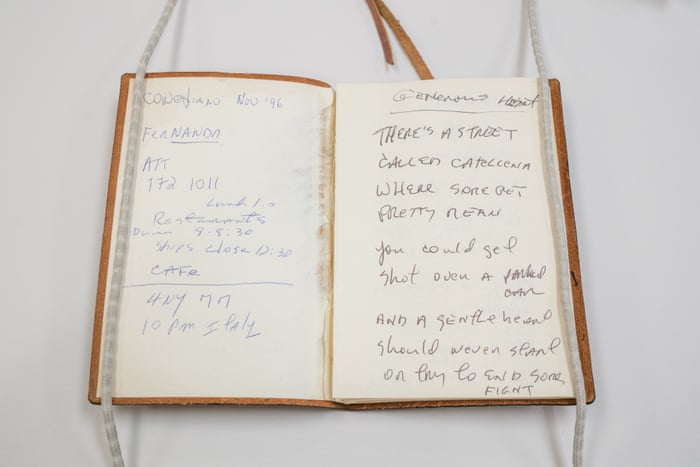 CONEGLIANO Nov '96
FERNANDA
ATT
172 1011
Lunch 1.0
Restaurants
Dinner 8-8:30
Shops close 12:30
CAFe
4 NY
10 pm Italy
GENEROUS HEART
THERE'S A STREET
CALLED CATELLENA
WHERE SOME GET
PRETTY MEAN
You could get
shot over a parked
car
AND A gentle heart
should never start
or try to END some
FIGHT